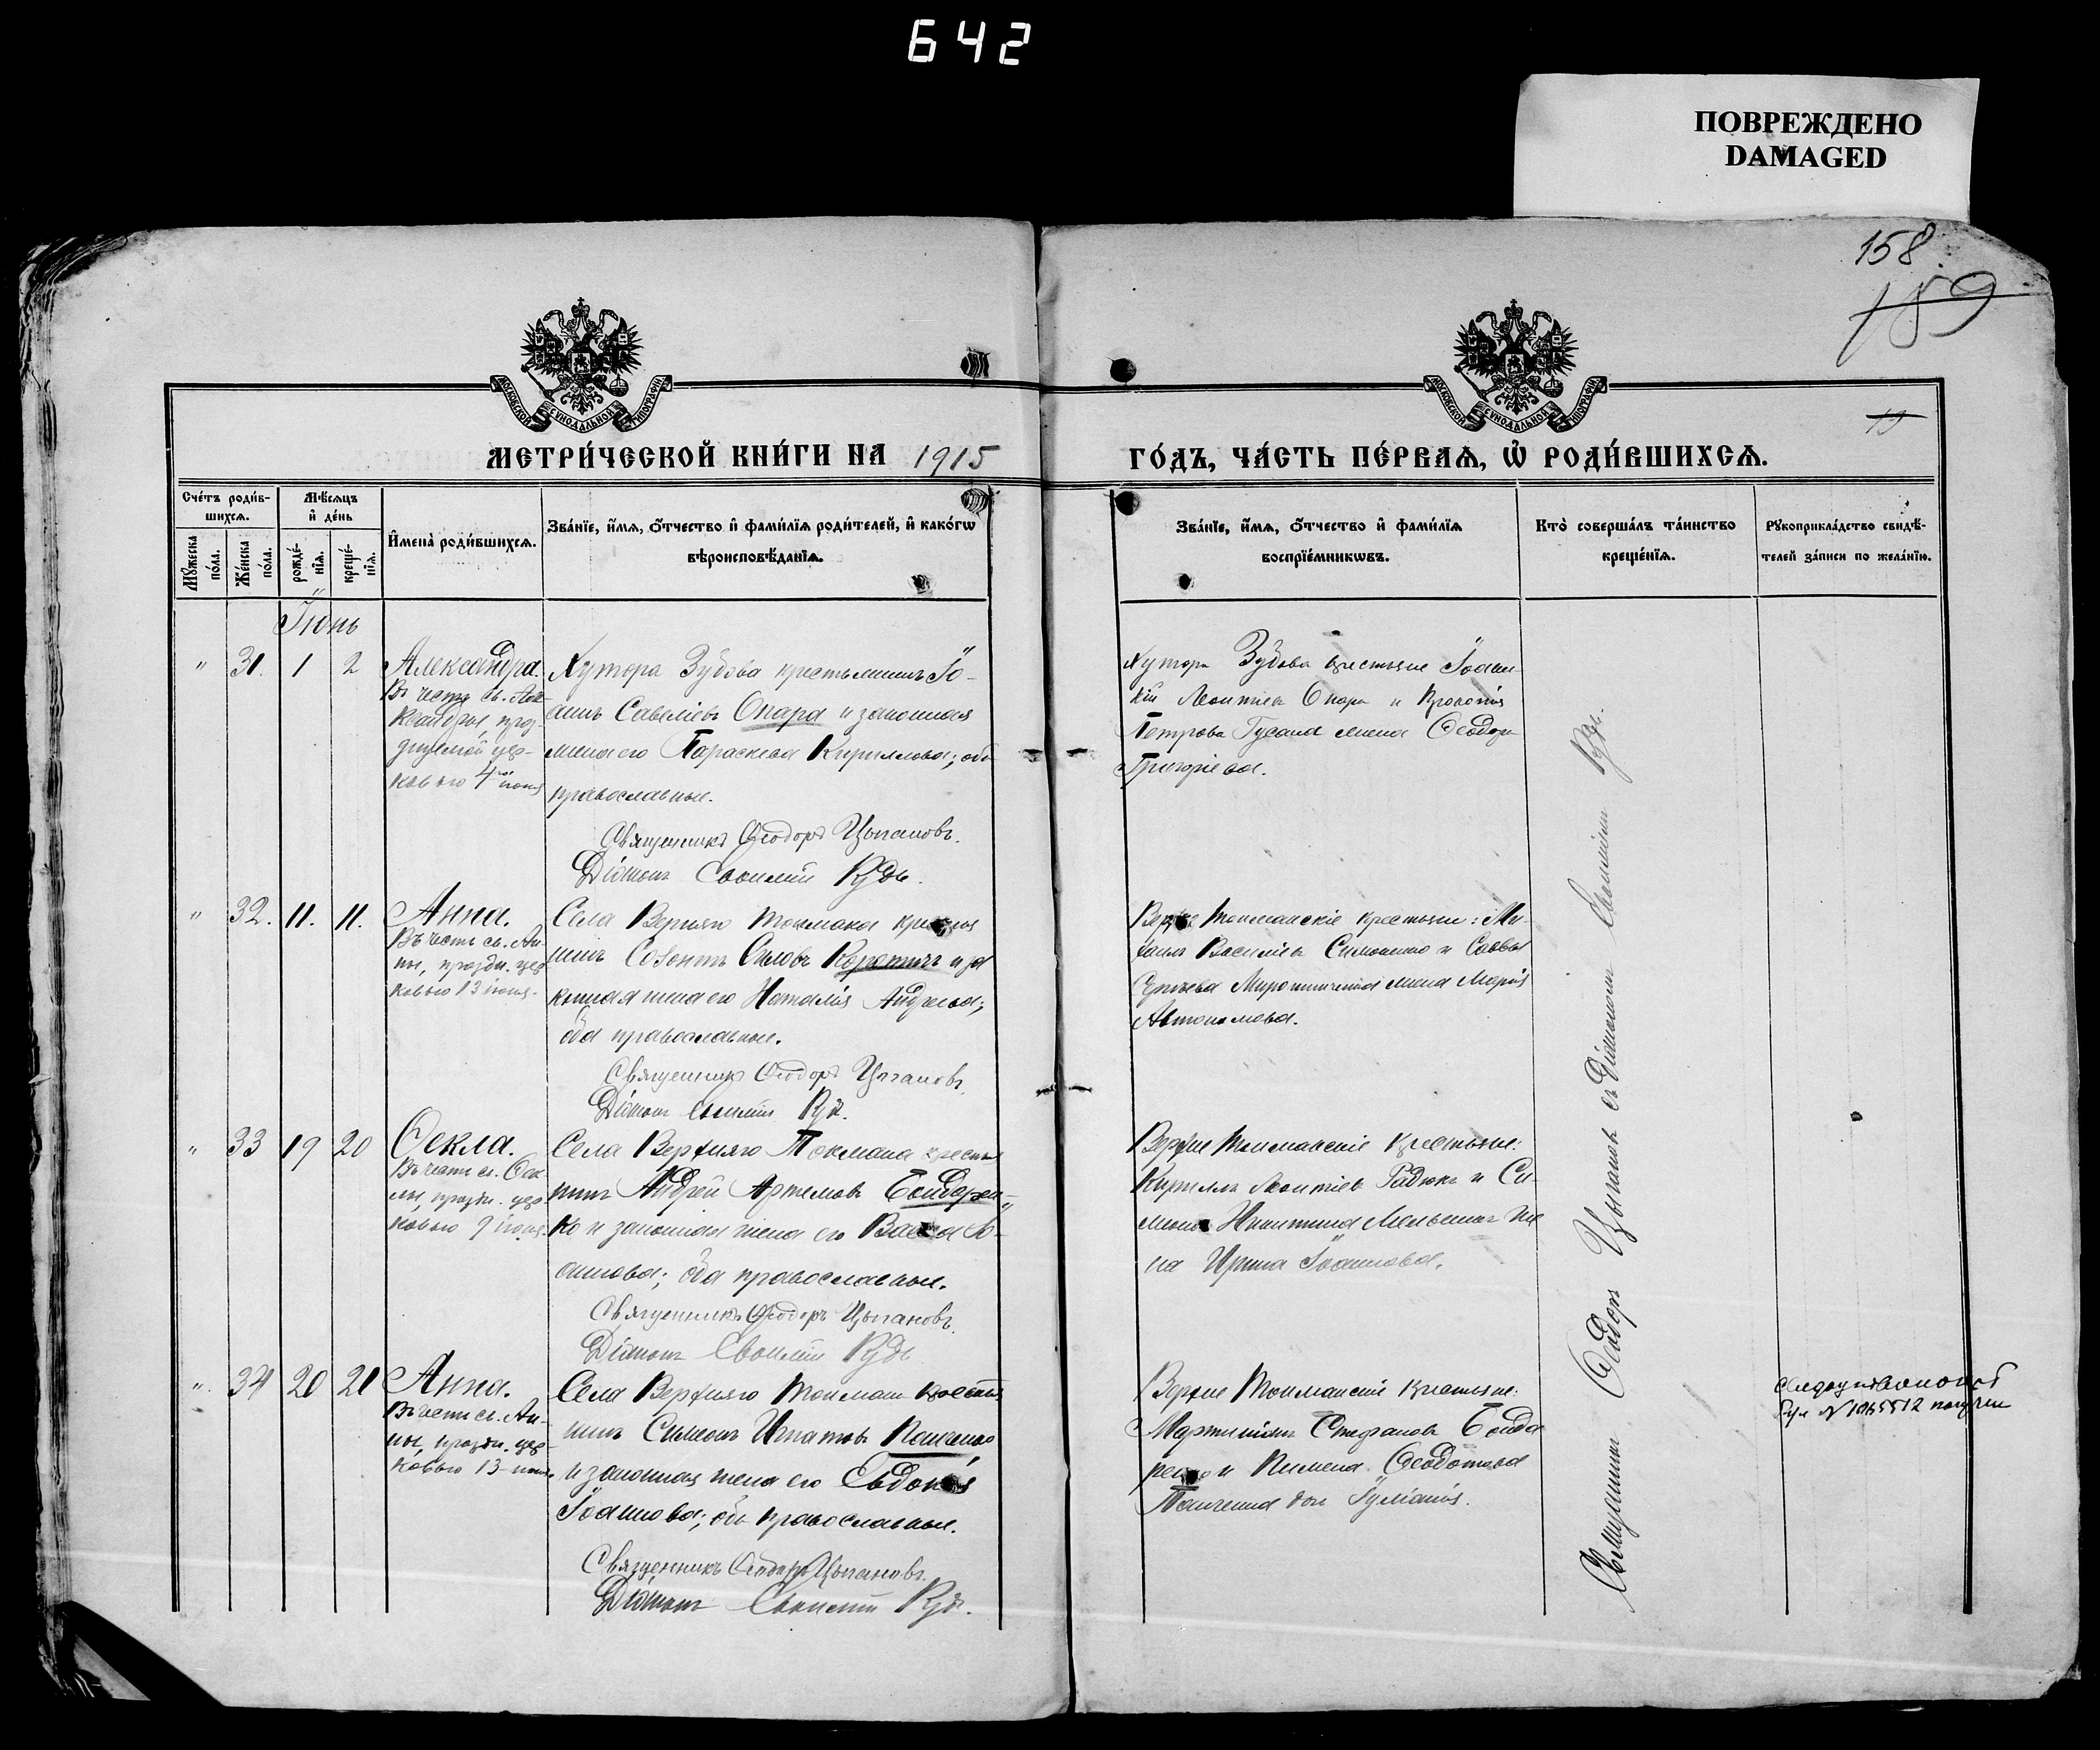 642
ПОВРЕЖДЕНО
DAMAGED
158
159
19
МОСКОВСКОЙ СѴНОДАЛЬНОЙ ТИПОГРАФІИ
МОСКОВСКОЙ СѴНОДАЛЬНОЙ ТИПОГРАФІИ
МЕТРИ́ЧЕСКОЙ КНИ́ГИ НА 1915
ГО́ДЪ, ЧА́СТЬ ПЕ́РВАѦ, Ѽ РОДИ́ВШИХСѦ.
Сче́тъ роди́в-
шихсѧ.
Мѣ́сѧцъ
и҆ де́нь
Мꙋ́жеска
по́ла.
Же́нска
по́ла.
рожде́-
нїѧ.
креще́-
нїѧ.
И҆мена̀ роди́вшихсѧ.
Зва́нїе, и҆́мѧ, ѻ҆́тчество и҆ фами́лїѧ роди́телей, и҆ како́гѡ
вѣроисповѣ́данїѧ.
Зва́нїе, и҆́мѧ, ѻ҆́тчество и҆ фами́лїѧ
воспрїе́мникѡвъ.
Кто̀ соверша́лъ та́инство
креще́нїѧ.
Рꙋкоприкла́дство свидѣ́-
телей за́писи по жела́нїю.
Іюнь
" 31. 1 2 Александра.
Въ честь св. Але
ксандры, праз-
днуемой цер-
ковью 4го іюня
Хутора Зубова крестьянинъ Іо-
аннъ Савеліевъ Опара и законная
жена его Параскева Кириллова; оба
православные.
Священникъ Ѳеодоръ Цыгановъ.
Діаконъ Рудь.
Хутора Зубова крестьяне Іоан-
Леонтіевъ Опара и Прокопія
Петрова Гусака жена Ѳеодора
Григоріева.
" 32. 11. 11. Анна.
Въ честь св. Ан-
ны, праздн. цер
ковью 13 іюня.
Села Верхняго Токмака крестья
нинъ Созонтъ Коротичъ и за
конная жена его Наталія Андреева;
оба православные.
Священникъ Ѳеодоръ Цыгановъ.
Діаконъ Рудь.
Верхне Токмакскіе крестьяне: Ми-
Васильевъ Симоненко и Саввы
Сергѣева Мирошниченка жена Марія
Автономова.
" 33 19 20 Ѳекла.
Въ честь св. Ѳек
лы, праздн. цер
ковью 9 іюня.
Села Верхняго Токмака крестья
нинъ Андрей Артемовъ Бондарен-
ко и законная жена его Васса Іо-
аннова; оба православные.
Священникъ Ѳеодоръ Цыгановъ.
Діаконъ Рудь
Верхне Токмакскіе крестьяне:
Кириллъ Леонтіевъ Радюкъ и Си-
Никитина Мельника же
на Ирина Іоаннова.
" 34 20 21 Анна.
Въ честь св. Ан-
ны, праздн. цер-
ковью 13 іюня.
Села Верхняго Токмака крестья
нинъ Симеонъ Игнатовъ
и законная жена его Евдокія
Іоаннова; оба православные.
Священникъ Ѳеодоръ Цыгановъ.
Діаконъ Рудь.
Верхне Токмакскіе крестьяне:
Мартиніанъ Стефановъ Бонда
ренко и Пимена Ѳеодотова
Панченка дочь Іуліанія.
Священникъ Ѳеодоръ Цыгановъ съ Діакономъ Рудь.